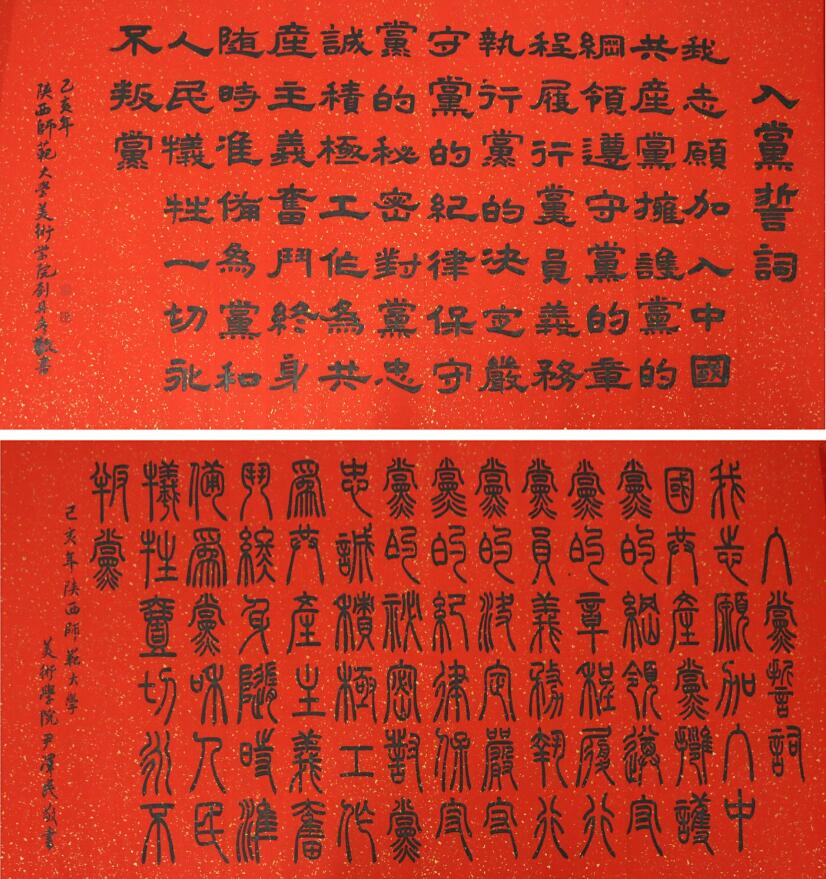 入黨誓詞
我志願加入中國
共產黨擁護黨的
綱領遵守黨的章
程履行黨員義務
執行黨的決定嚴
守黨的紀律保守
黨的秘密對黨忠
誠積極工作為共
產主義奮鬥終身
随時准備為黨和
人民犧牲一切永
不叛黨
己亥年
陝西師範大學美術学院刘敬書
入黨誓詞
我志願加入中
國共產黨擁護
黨的綱領遵守
黨的章程履行
黨員義務執行
黨的決定嚴守
黨的紀律保守
黨的祕密對黨
忠誠積極工作
爲共產主義奮
鬥終身隨時準
備爲黨和人民
犧牲壹切永不
叛黨
己亥年陝西師範大學
美術學院尹澤民敬書